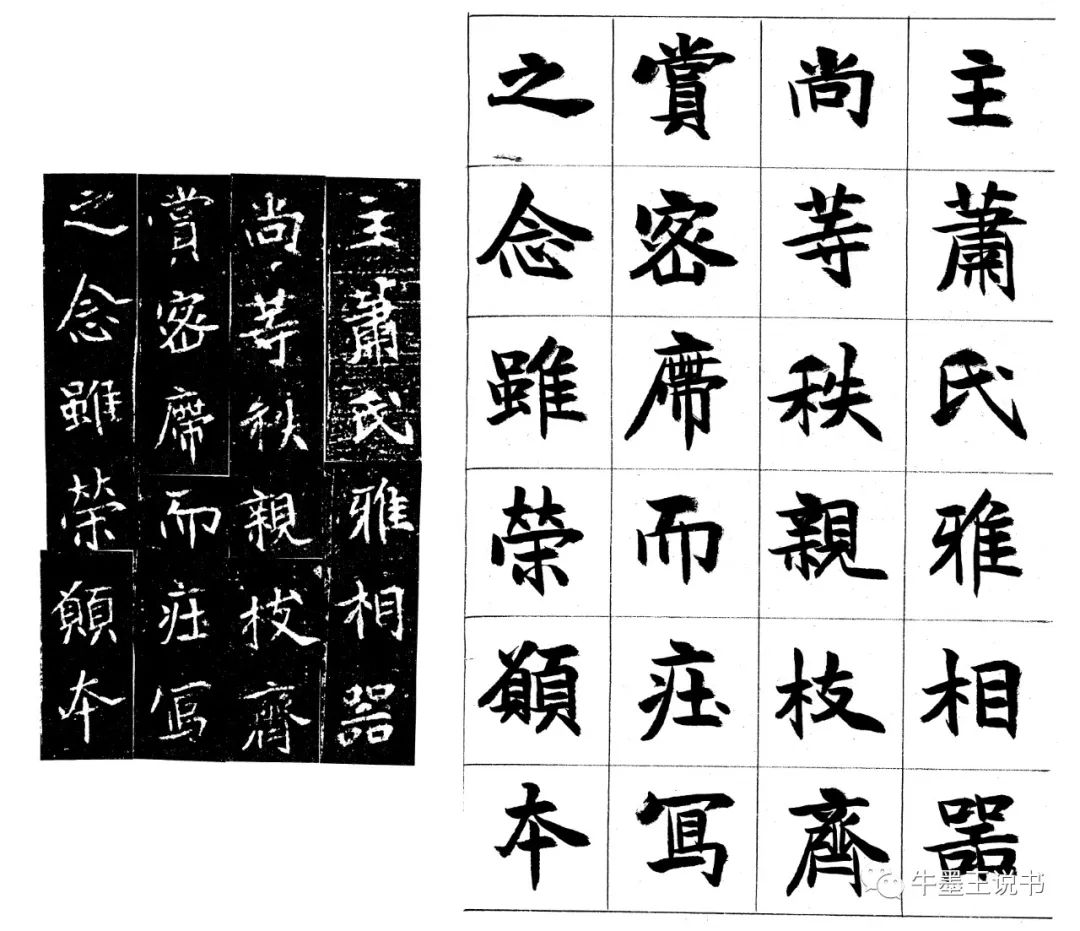 主蕭氏雅相器
尚等秩親枝齊
賞密席而莊寫
之念雖榮願本
主蕭氏雅相器
尚等秩親枝齊
賞密席而莊寫
之念雖榮願本
牛墨王说书